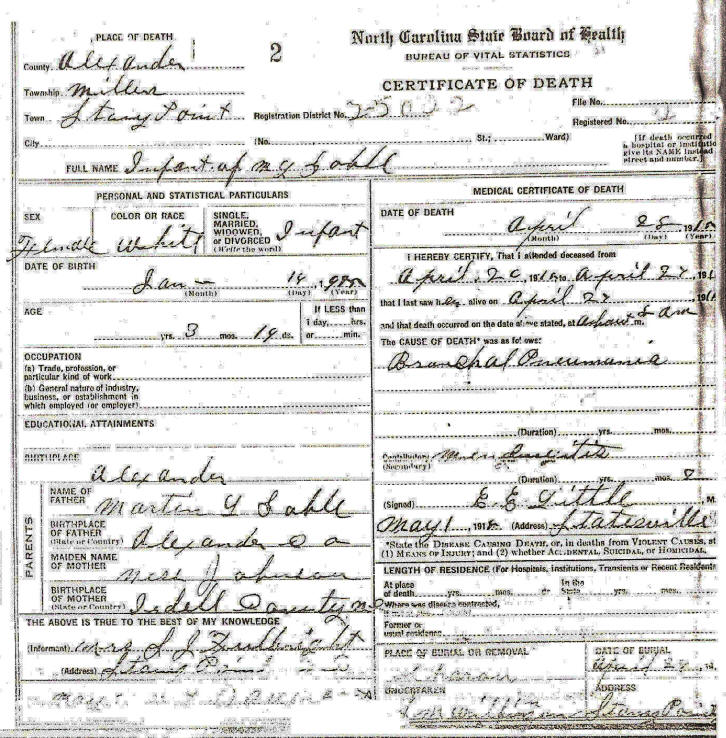 PLACE OF DEATH
2
North Carolina State Board of Health
BUREAU OF VITAL STATISTICS
County Alexander
CERTIFICATE OF DEATH
Township Miller
File No.
Town Stony Point Registration District No.
Registered No.
City (No. St.; Ward)
[If death occurred
a hospital or institutio
give its NAME instead
street and number.]
FULL NAME Infant of M Y
PERSONAL AND STATISTICAL PARTICULARS
SEX
Female
COLOR OR RACE
White
SINGLE,
MARRIED,
WIDOWED,
or DIVORCED
(Write the word)
Infant
DATE OF BIRTH
Jan 14, 19
(Month) (Day) (Year)
AGE
If LESS than
1 day, hrs.
yrs. 3 mos. 19 ds. or min.
OCCUPATION
(a) Trade, profession, or
particular kind of work
(b) General nature of industry,
business, or establishment in
which employed (or employer)
EDUCATIONAL ATTAINMENTS
BIRTHPLACE
Alexander
PARENTS
NAME OF
FATHER
Martin Y
BIRTHPLACE
OF FATHER
(State or Country)
Alexander Co
MAIDEN NAME
OF MOTHER
Johnson
BIRTHPLACE
OF MOTHER
(State or Country)
Iredell County
THE ABOVE IS TRUE TO THE BEST OF MY KNOWLEDGE
(Informant) Mrs
(Address) Stony Point
MEDICAL CERTIFICATE OF DEATH
DATE OF DEATH
April 28 191
(Month) (Day) (Year)
I HEREBY CERTIFY, That I attended deceased from
April, 191 to April 27 191
that I last saw her alive on April 27 191
and that death occurred on the date above stated, at about m.
The CAUSE OF DEATH* was as follows:
Bronchal Pneumonia
(Duration) yrs. mos.
Contributory
(Secondary)
(Duration) yrs. mos. 8
(Signed) E E Little, M
May 1 191 (Address) Statesville
*State the DISEASE CAUSING DEATH, or, in deaths from VIOLENT CAUSES, st
(1) MEANS OF INJURY; and (2) whether ACCIDENTAL, SUICIDAL, OR HOMICIDAL.
LENGTH OF RESIDENCE (For Hospitals, Institutions, Transients or Recent Residents
At place
of death yrs. mos. In the
State yrs. mos.
Where was disease contracted,
Former or
usual residence
PLACE OF BURIAL OR REMOVAL
Sharon
DATE OF BURIAL
April 29, 19
UNDERTAKER
ADDRESS
Stony Point